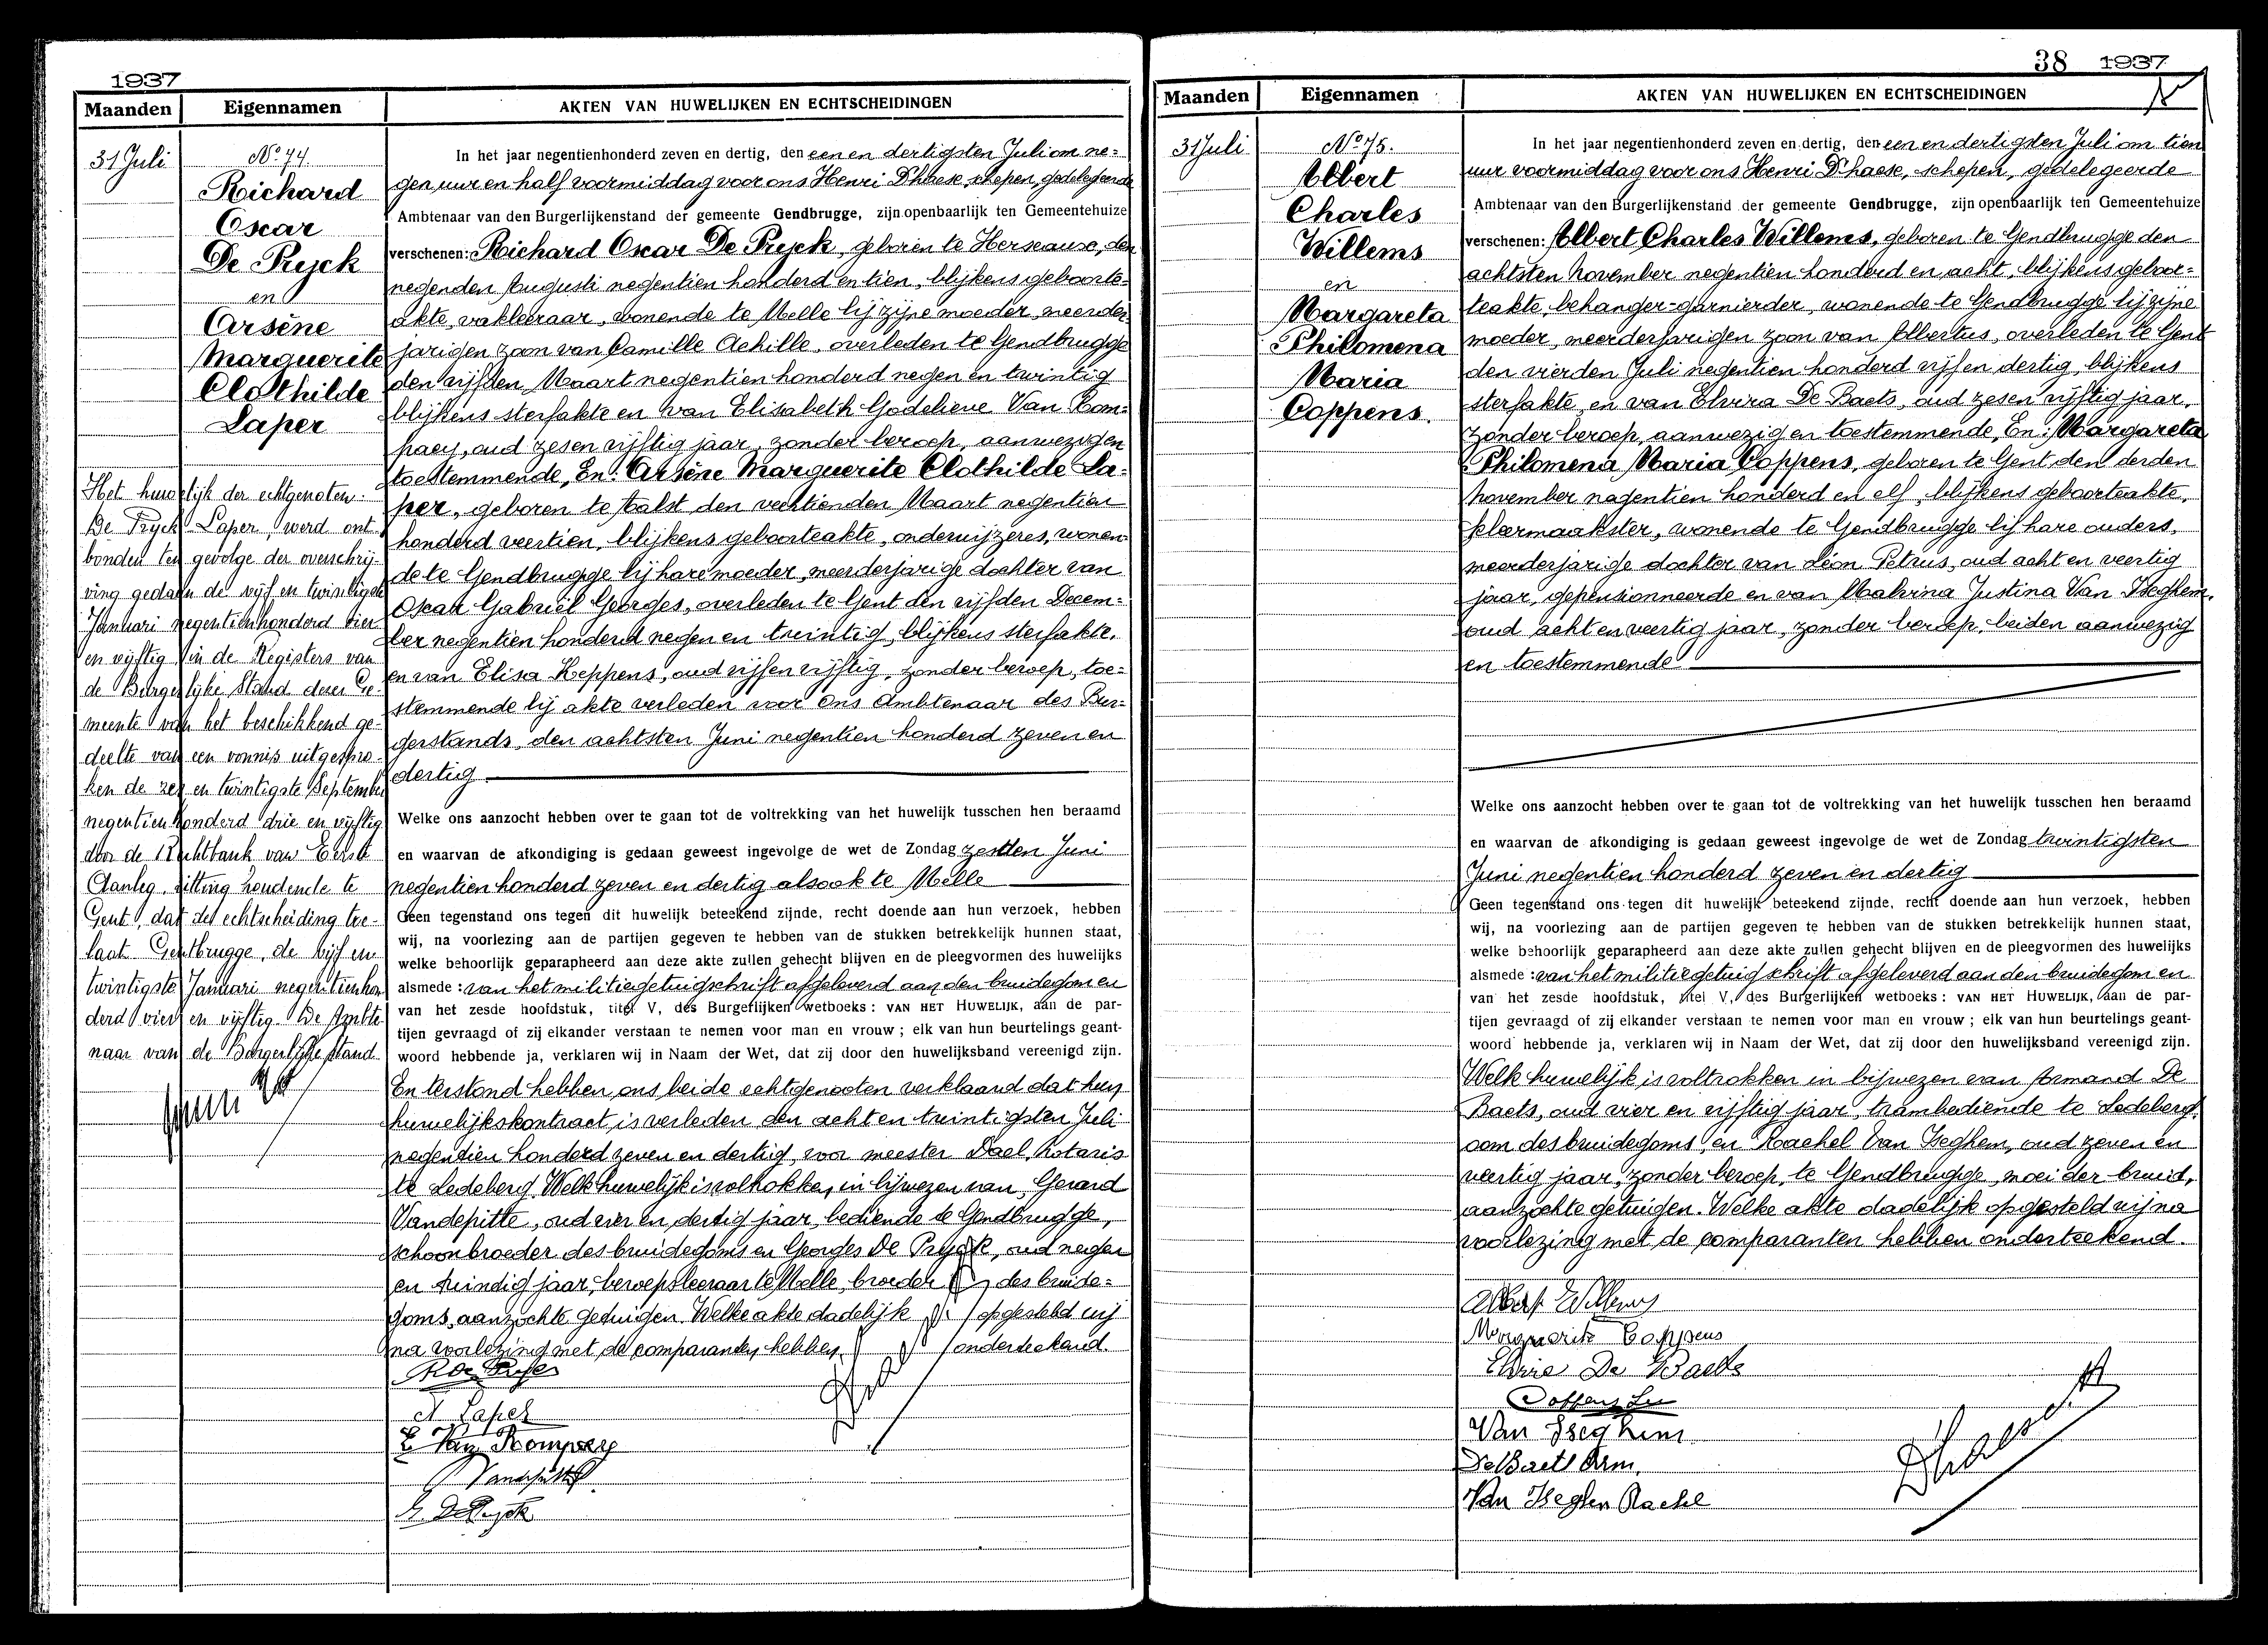 1937
Maanden Eigennamen AKTEN VAN HUWELIJKEN EN ECHTSCHEIDINGEN
31 Juli
No 74.
Richard
Oscar
De Ryck
en
Arsène
Marguerite
Clothilde
Laper
Het huwelijk der echtgenoten:
De Ryck Laper, werd ont-
bonden ten gevolge der overschrij-
ving gedaan de vijf en twintigste
Januari negentienhonderd vier
en vijftig in de Registers van
de Burgerlijke Stand dezer Ge-
meente van het beschikkend ge-
deelte van een vonnis uitgespro-
ken de zes en twintigste September
negentienhonderd drie en vijftig
door de Rechtbank van Eerste
Aanleg, zitting houdende te
Gent, dat de echtscheiding toe-
laat. Gentbrugge, de vijf en
twintigste Januari negentienhon-
derd vier en vijftig. De Ambte-
naar van de Burgerlijke stand.
In het jaar negentienhonderd zeven en dertig, den een en dertigsten Juli om ne=
gen uur en half voormiddag voor ons Henri D'haese, schepen, gedelegeerde
Ambtenaar van den Burgerlijkenstand der gemeente Gendbrugge, zijn openbaarlijk ten Gemeentehuize
verschenen: Richard Oscar De Ryck, geboren te Herseause, den
negenden Augusti negentien honderd en tien, blijkens geboorte-
akte, vakleeraar, wonende te Melle bij zijne moeder, meerder-
jarigen zoon van Camille Achille, overleden te Gendbrugge
den vijfden Maart negentien honderd negen en twintig
blijkens sterfakte en van Elisabeth Godelieve Van Rom=
paey, oud zes en vijftig jaar, zonder beroep, aanwezig en
toestemmende, En: Arsène Marguerite Clothilde La-
per, geboren te Aalst den veertienden Maart negentien
honderd veertien, blijkens geboorteakte, onderwijzeres, wonen-
de te Gendbrugge bij hare moeder, meerderjarige dochter van
Oscar Gabriël Georges, overleden te Gent den vijfden Decem=
ber negentien honderd negen en twintig, blijkens sterfakte.
en van Elisa Keppens, oud vijf en vijftig, zonder beroep, toe=
stemmende bij akte verleden voor ons Ambtenaar des Bur=
gerstands, den achtsten Juni negentien honderd zeven en
dertig
Welke ons aanzocht hebben over te gaan tot de voltrekking van het huwelijk tusschen hen beraamd
en waarvan de afkondiging is gedaan geweest ingevolge de wet de Zondag zesden Juni
negentien honderd zeven en dertig alsook te Melle
Geen tegenstand ons tegen dit huwelijk beteekend zijnde, recht doende aan hun verzoek, hebben
wij, na voorlezing aan de partijen gegeven te hebben van de stukken betrekkelijk hunnen staat,
welke behoorlijk geparapheerd aan deze akte zullen gehecht blijven en de pleegvormen des huwelijks
alsmede: van het militiegetuigschrift afgeleverd aan den bruidegom en
van het zesde hoofdstuk, titel V, des Burgerlijken wetboeks: VAN HET HUWELIJK, aan de par-
tijen gevraagd of zij elkander verstaan te nemen voor man en vrouw; elk van hun beurtelings geant-
woord hebbende ja, verklaren wij in Naam der Wet, dat zij door den huwelijksband vereenigd zijn.
En terstond hebben ons beide echtgenooten verklaard dat hun
huwelijkskontract is verleden den acht en twintigsten Juli
negentien honderd zeven en dertig, voor meester Dael, Notaris
te Ledeberg. Welk huwelijk is voltrokken, in bijwezen van Gerard
Vandepitte, oud vier en dertig jaar, bediende te Gendbrugge,
schoonbroeder des bruidegoms en Georges De Ryck, oud negen
en twindig jaar, beroepsleeraar te Melle, broeder des bruide=
goms, aanzochte getuigen. Welke akte dadelijk opgesteld wij
na voorlezing met de comparanten hebben onderteekend.
R De Ryck
A Laper
E Van Rompaey
G Vandepitte
G. De Ryck
38 1937
Maanden Eigennamen AKTEN VAN HUWELIJKEN EN ECHTSCHEIDINGEN
31 Juli
No 75.
Albert
Charles
Willems
en
Margareta
Philomena
Maria
Coppens.
In het jaar negentienhonderd zeven en dertig, den een en dertigsten Juli om tien
uur voormiddag voor ons Henri D'haese, schepen, gedelegeerde
Ambtenaar van den Burgerlijkenstand der gemeente Gendbrugge, zijn openbaarlijk ten Gemeentehuize
verschenen: Albert Charles Willems, geboren te Gendbrugge den
achtsten November negentien honderd en acht, blijkens geboor=
teakte, behanger-garnierder, wonende te Gendbrugge bij zijne
moeder, meerderjarigen zoon van Albertus, overleden te Gent
den vierden Juli negentien honderd vijf en dertig, blijkens
sterfakte, en van Elvira De Baets, oud zes en vijftig jaar,
zonder beroep, aanwezig en toestemmende, En: Margareta
Philomena Maria Coppens, geboren te Gent den derden
November negentien honderd en elf, blijkens geboorteakte,
kleermaakster, wonende te Gendbrugge bij hare ouders,
meerderjarige dochter van Léon Petrus, oud acht en veertig
jaar, gepensionneerde en van Malvina Justina Van Iseghem,
oud acht en veertig jaar, zonder beroep, beiden aanwezig
en toestemmende
Welke ons aanzocht hebben over te gaan tot de voltrekking van het huwelijk tusschen hen beraamd
en waarvan de afkondiging is gedaan geweest ingevolge de wet de Zondag twintigsten
Juni negentien honderd zeven en dertig
Geen tegenstand ons tegen dit huwelijk beteekend zijnde, recht doende aan hun verzoek, hebben
wij, na voorlezing aan de partijen gegeven te hebben van de stukken betrekkelijk hunnen staat,
welke behoorlijk geparapheerd aan deze akte zullen gehecht blijven en de pleegvormen des huwelijks
alsmede: van het militiegetuigschrift afgeleverd aan den bruidegom en
van het zesde hoofdstuk, titel V, des Burgerlijken wetboeks: VAN HET HUWELIJK, aan de par-
tijen gevraagd of zij elkander verstaan te nemen voor man en vrouw; elk van hun beurtelings geant-
woord hebbende ja, verklaren wij in Naam der Wet, dat zij door den huwelijksband vereenigd zijn.
Welk huwelijk is voltrokken in bijwezen van Armand De
Baets, oud vier en vijftig jaar, trambediende te Ledeberg,
oom des bruidegoms, en Rachel Van Iseghem, oud zeven en
veertig jaar, zonder beroep, te Gendbrugge, moei der bruid,
aanzochte getuigen. Welke akte dadelijk opgesteld wij na
voorlezing met de comparanten hebben onderteekend.
Albert Willems
Marguerite Coppens
Elvire De Baets
Coppens Léon
Van Iseghem
De Baets Arm.
Van Iseghem Rachel
D'haese H